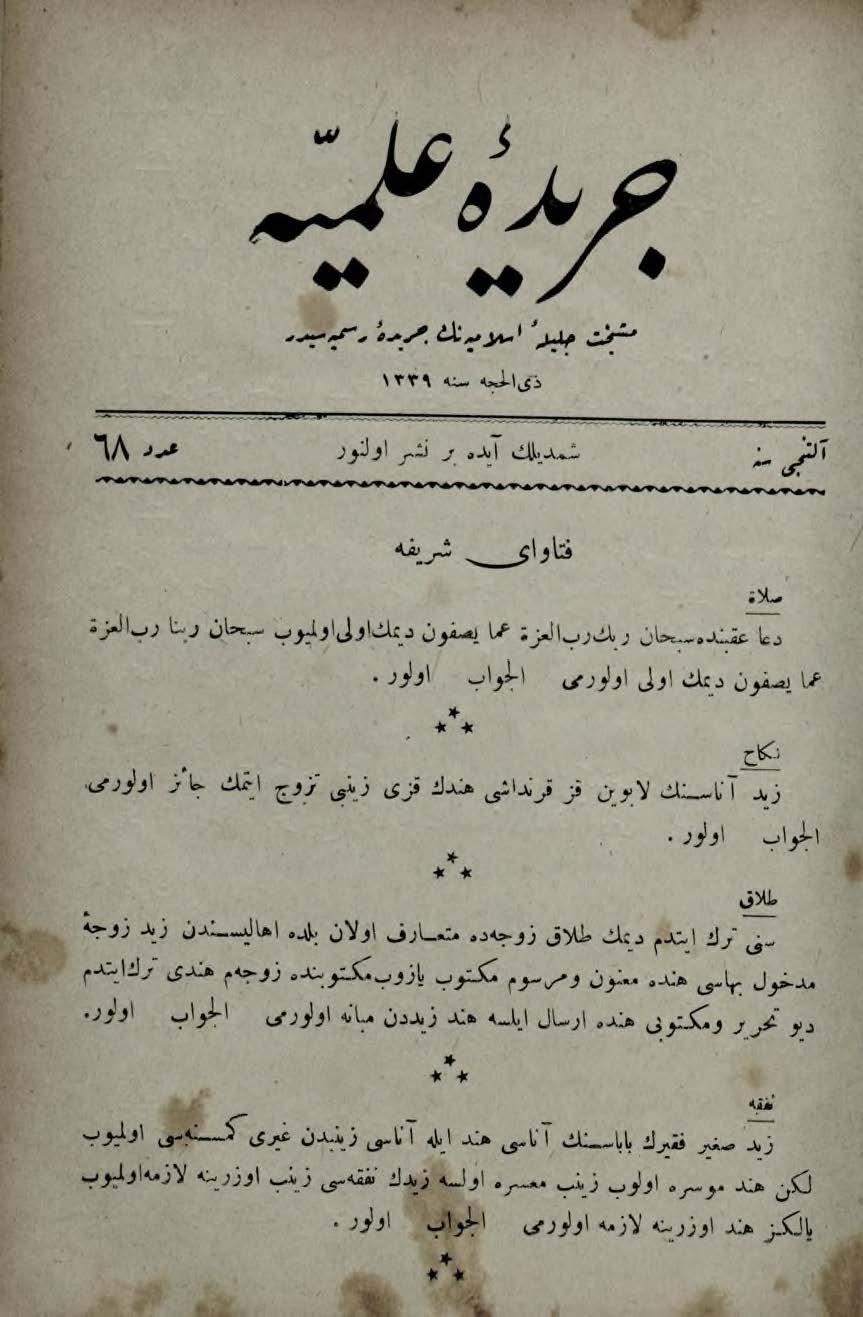 جريدهٔ علميّه
مشيخت جليلهٔ اسلاميه‌نك جريدهٔ رسميه‌سيدر
ذى الحجه سنه ١٣٣٩
آلتنجى سنه شمديلك آيده بر نشر اولنور عدد ٦٨
فتاواى شريفه
صلاة
دعا عقبنده سبحان ربك رب العزة عما يصفون ديمك اولى اولميوب سبحان ربنا رب العزة
عما يصفون ديمك اولى اولورمى الجواب اولور .
***
نكاح
زيد آناسنك لابوين قز قرنداشى هندك قزى زينبى تزوج ايتمك جائز اولورمى
الجواب اولور .
***
طلاق
سنى ترك ايتدم ديمك طلاق زوجه‌ده متعارف اولان بلده اهاليسندن زيد زوجهٔ
مدخول بهاسى هنده معنون ومرسوم مكتوب يازوب مكتوبنده زوجه‌م هندى ترك ايتدم
ديو تحرير ومكتوبى هنده ارسال ايلسه هند زيددن مبانه اولورمى الجواب اولور.
***
نفقه
زيد صغير فقيرك باباسنك آناسى هند ايله آناسى زينبدن غيرى كمسنه‌سى اولميوب
لكن هند موسره اولوب زينب معسره اولسه زيدك نفقه‌سى زينب اوزرينه لازمه اولميوب
يالكز هند اوزرينه لازمه اولورمى الجواب اولور .
***